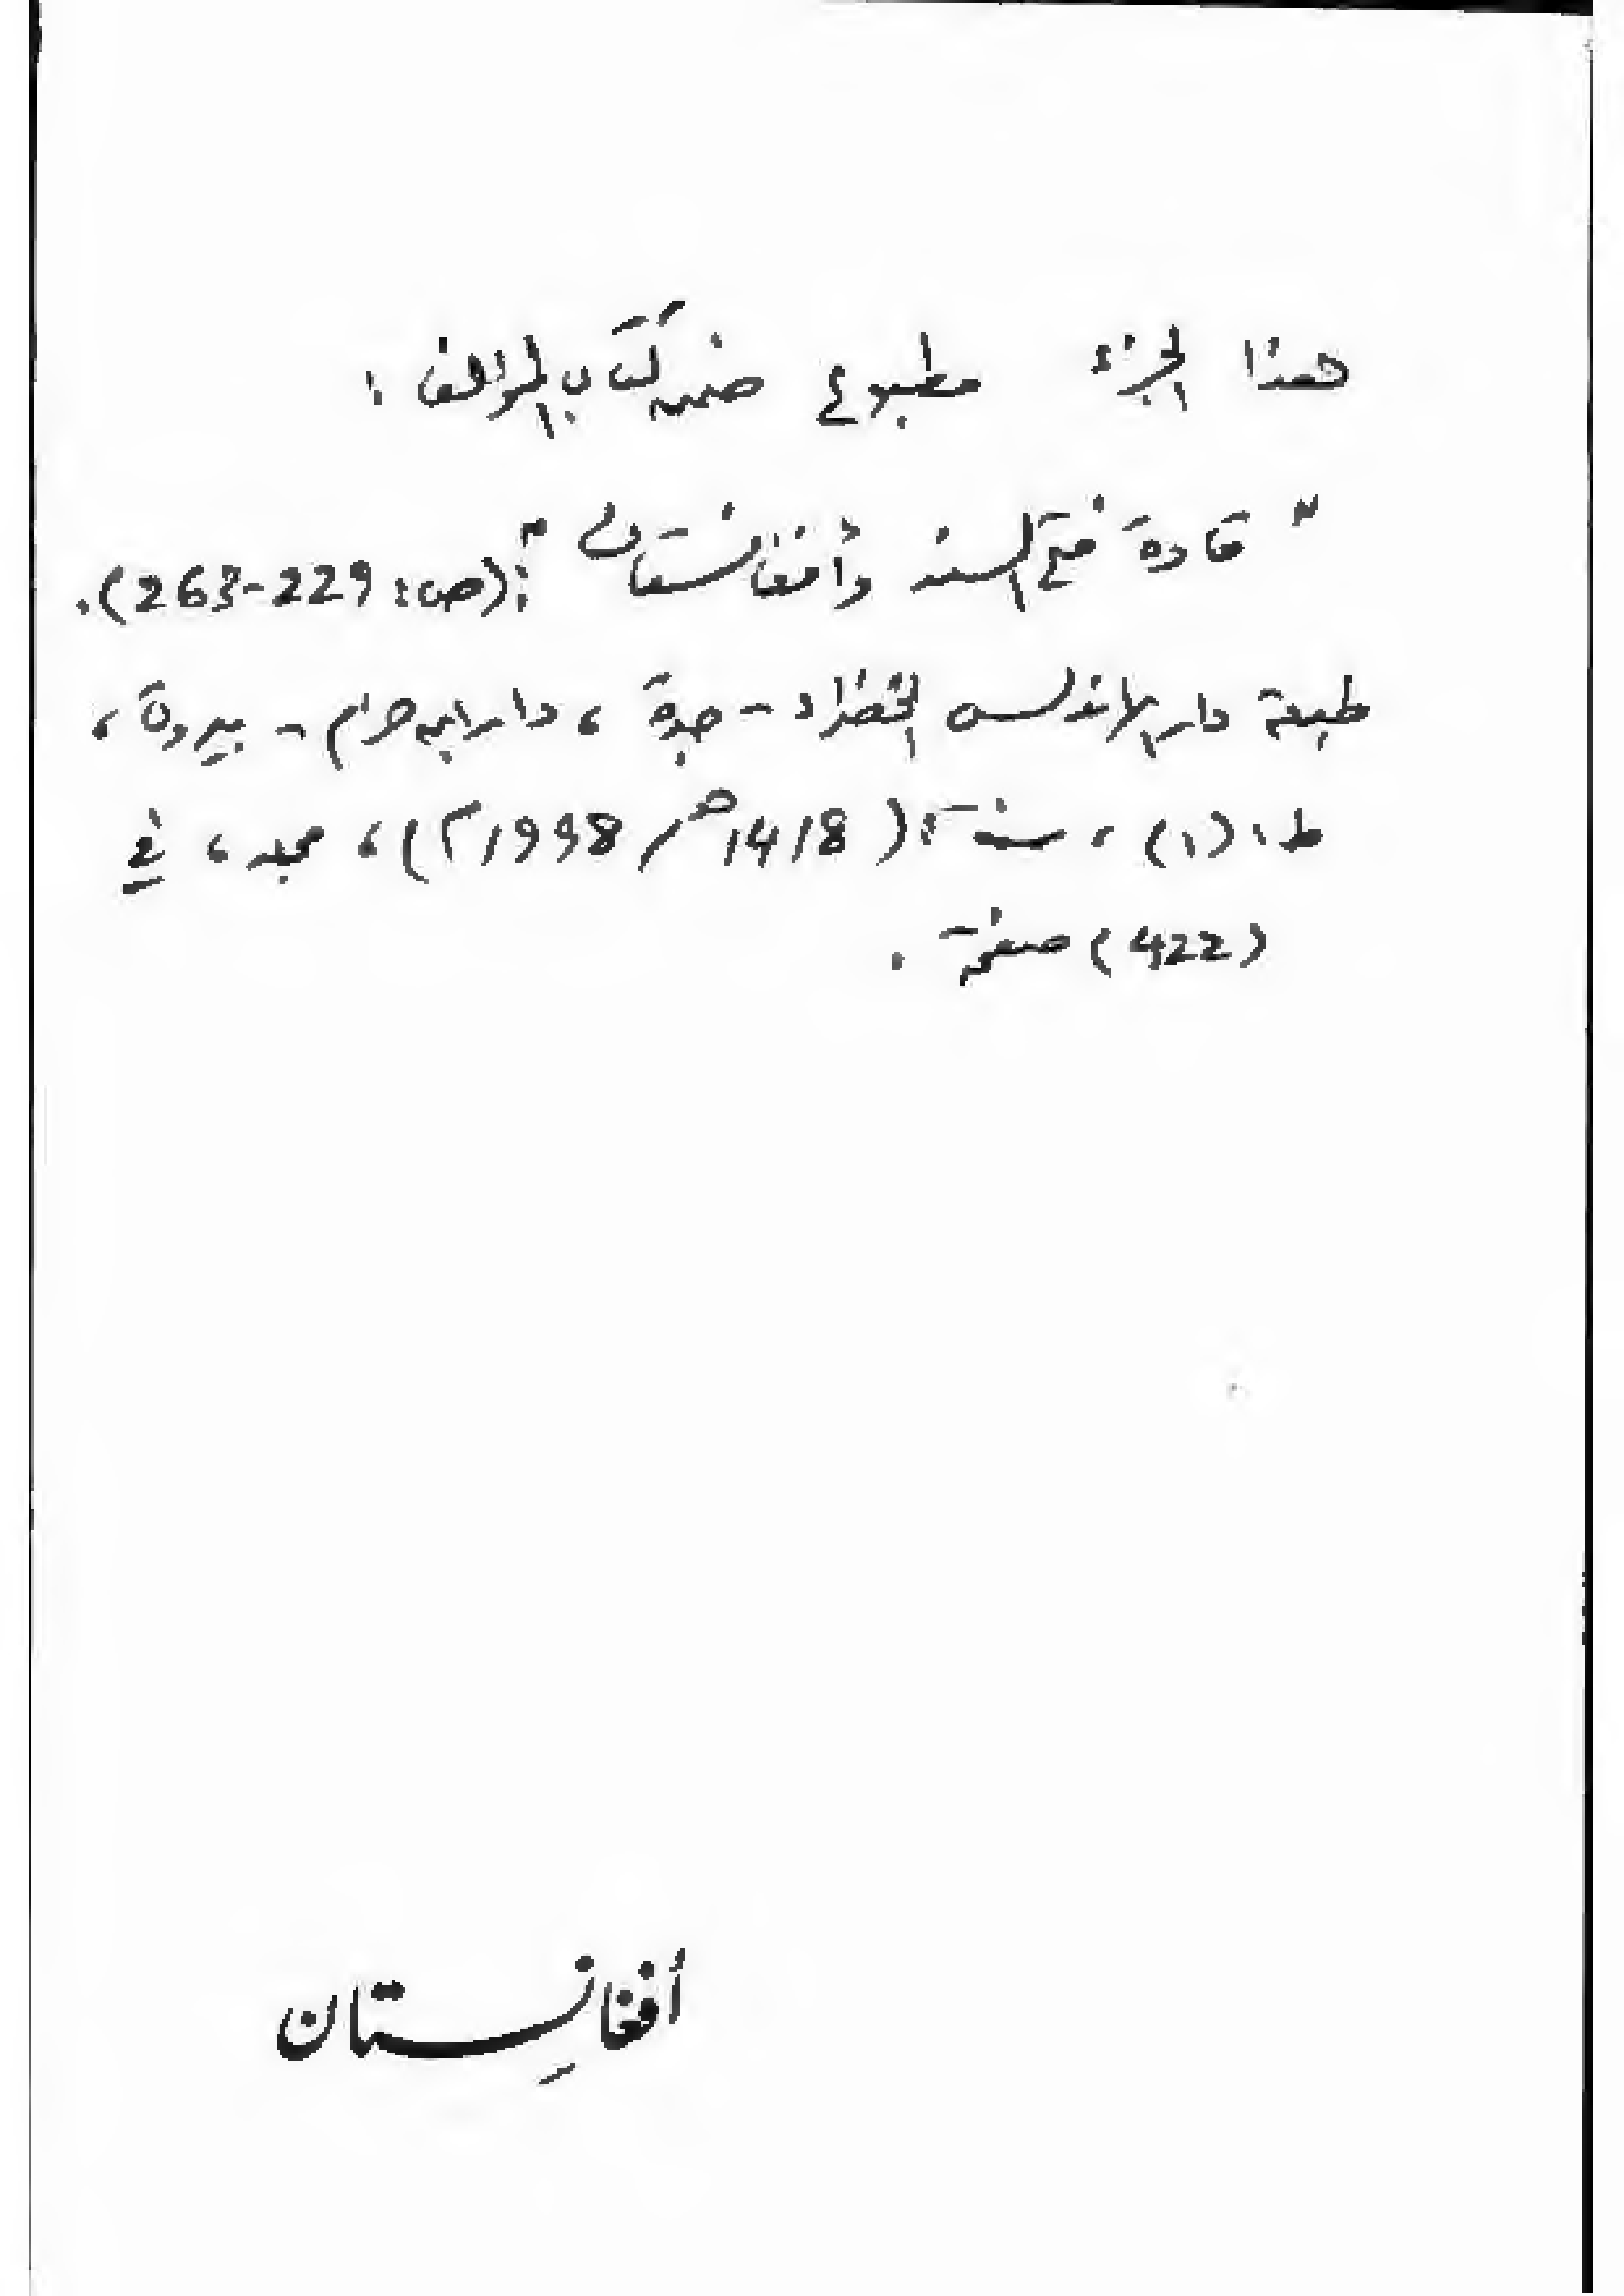 هذا الجزء مطبوع ضمن كتاب المؤلف :
" قادة فتح السند وأفغانستان " : (ص: 229-263).
طبعة دار الأندلس الخضراء - جدة ، دار ابن حزم - بيروت ،
ط: (١) ، سنة : (1418هـ / 1998م) ، مجلد ، في
(422) صفحة .
أفغانستان